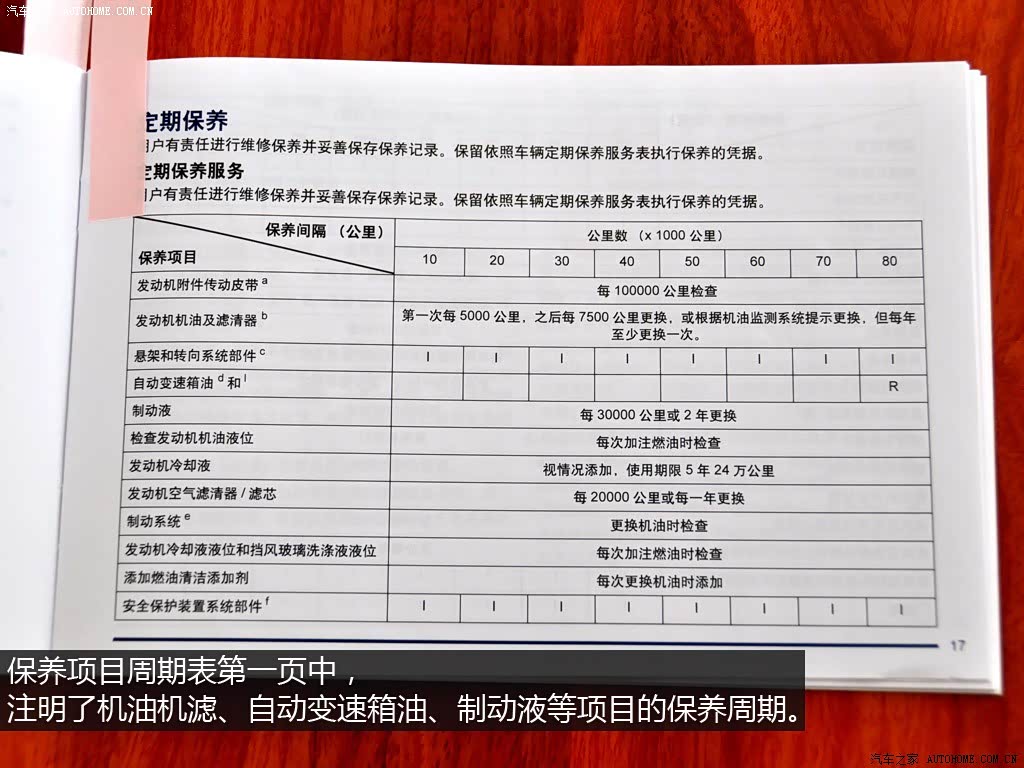 汽车之家 AUTOHOME.COM.CN
定期保养
用户有责任进行维修保养并妥善保存保养记录。保留依照车辆定期保养服务表执行保养的凭据。
定期保养服务
用户有责任进行维修保养并妥善保存保养记录。保留依照车辆定期保养服务表执行保养的凭据。
保养间隔 （公里） 公里数 （x 1000 公里）
保养项目 10 20 30 40 50 60 70 80
发动机附件传动皮带 a 每 100000 公里检查
发动机机油及滤清器 b 第一次每 5000 公里，之后每 7500 公里更换，或根据机油监测系统提示更换，但每年
至少更换一次。
悬架和转向系统部件 c I I I I I I I I
自动变速箱油 d 和 l R
制动液 每 30000 公里或 2 年更换
检查发动机机油液位 每次加注燃油时检查
发动机冷却液 视情况添加，使用期限 5 年 24 万公里
发动机空气滤清器 / 滤芯 每 20000 公里或每一年更换
制动系统 e 更换机油时检查
发动机冷却液液位和挡风玻璃洗涤液液位 每次加注燃油时检查
添加燃油清洁添加剂 每次更换机油时添加
安全保护装置系统部件 f I I I I I I I I
17
保养项目周期表第一页中，
注明了机油机滤、自动变速箱油、制动液等项目的保养周期。
汽车之家 AUTOHOME.COM.CN